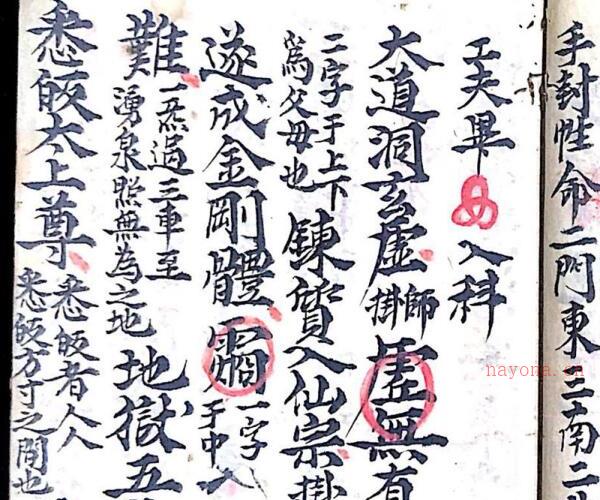 手封性命二門東三南二北
工夫畢 入科
大道洞玄虛 師掛 虛無有
二字于上下
為父母也 鍊質入仙宗掛
遂成金剛體 一字
于中入
難 一炁過三車至
湧泉照無為之地 地獄五
悉皈太上尊 悉皈者人人
悉皈方寸之間也
nayona.cn